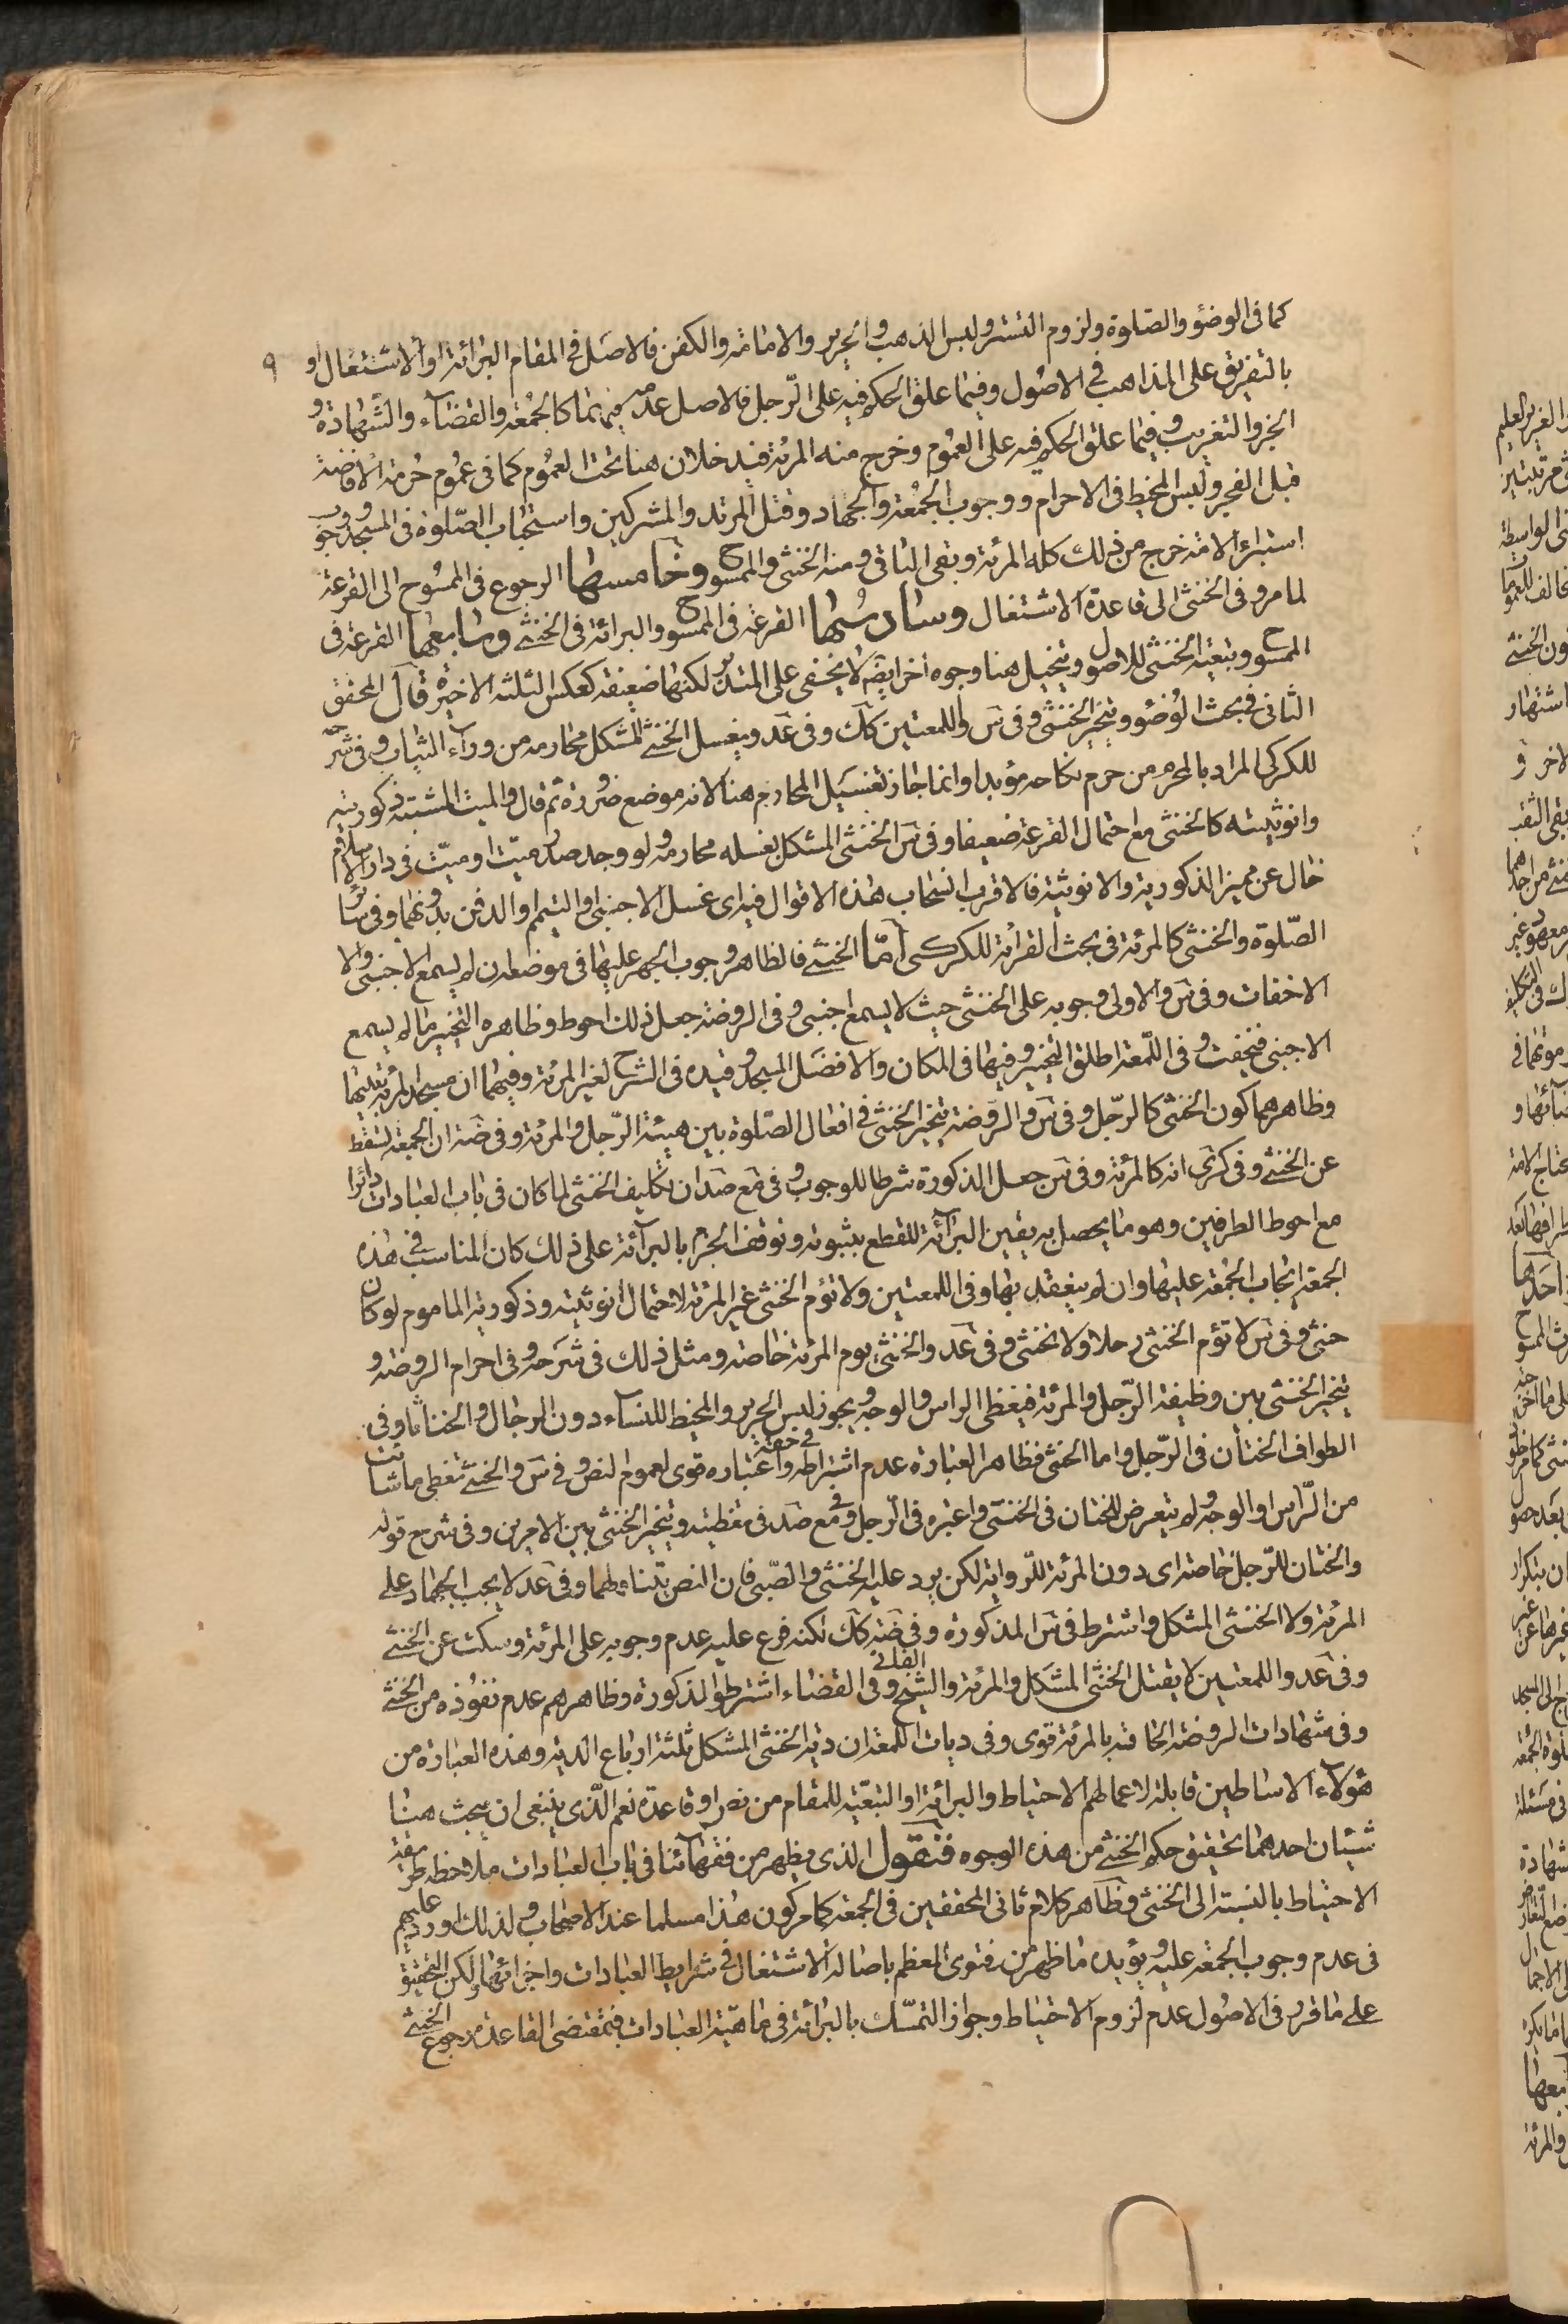 ٩
كما فى الوضؤ والصلوة ولزوم التستر ولبس الذهب والحرير والامامة والكفن فالاصل فى المقام البرائة او الاشتغال او
بالتفريق على المذاهب فى الاصول وفيما علق الحكم فيه على الرجل فالاصل عدمه فيهما كالجمعة والقضاء والشهادة و
الجز والتغريب وفيما علق الحكم فيه على العموم وخرج منه المرئة فيدخلان هنا تحت العموم كما فى عموم حرمة الافاضة
قبل الفجر ولبس المخيط فى الاحرام ووجوب الجمعة والجهاد وقتل المرتد والمشركين واستحباب الصلوة فى المسجد ووجوب
استبراء الامة خرج من ذلك كله المرئة وبقى الباقى ومنه الخنثى والممسوح وخامسها الرجوع فى الممسوح الى القرعة
لما مر وفى الخنثى الى قاعدة الاشتغال وسادسها القرعة فى الممسوح والبرائة فى الخنثى وسابعها القرعة فى
الممسوح وتبعية الخنثى للاصول ويتخيل هنا وجوه اخر ايضا لا يخفى على المتدبر لكنها ضعيفة كعكس الثلثة الاخيرة قال المحقق
الثانى فى بحث الوضوء ويتخير الخنثى وفى س واللمعتين كك وفى عد ويغسل الخنثى المشكل محارمه من وراء الثياب وفى شرحه
للكركى المراد بالمحرم من حرم نكاحه مؤبدا وانما جاز تغسيل المحارم هنا لانه موضع ضرورة ثم قال والميت المشتبه ذكوريته
وانوثيته كالخنثى مع احتمال القرعة ضعيفا وفى س الخنثى المشكل يغسله محارمه ولو وجد صدر ميت او ميت فى دار الاسلام
خال عن مميز الذكورية والانوثية فالاقرب انسحاب هذه الاقوال فيه اى غسل الاجنبى او التيمم او الدفن بدونهما وفى ستر
الصلوة والخنثى كالمرئة فى بحث القرائة للكركى اما الخنثى فالظاهر وجوب الجهر عليها فى موضعه ان لم يسمع الاجنبى والا
الاخفات وفى س والاولى وجوبه على الخنثى حيث لا يسمع اجنبى وفى الروضة جعل ذلك احوط وظاهره التخيير ما لم يسمع
الاجنبى فتخفت وفى اللمعة اطلق التخيير وفيها فى المكان والافضل المسجد وقيده فى الشرح لغير المرئة وفيهما ان مسجد المرئة بيتها
وظاهرهما كون الخنثى كالرجل وفى س والروضة يتخير الخنثى فى افعال الصلوة بين هيئة الرجل والمرئة وفى ضة ان الجمعة تسقط
عن الخنثى وفى كرى انه كالمرئة وفى س جعل الذكورة شرطا للوجوب وفى مع صد ان تكليف الخنثى لما كان فى باب العبادات دائرا
مع احوط الطرفين وهو ما يحصل به يقين البرائة للقطع بثبوته وتوقف الجزم بالبرائة على ذلك كان المناسب فى هذه
الجمعة ايجاب الجمعة عليها وان لم ينعقد بها وفى اللمعتين ولا تؤم الخنثى غير المرئة لاحتمال انوثيته وذكورية الماموم لو كان
خنثى وفى س لا تؤم الخنثى رجلا ولا خنثى وفى عد والخنثى يوم المرئة خاصة ومثل ذلك فى شرحه وفى احرام الروضة و
يتخير الخنثى بين وظيفة الرجل والمرئة فيغطى الراس والوجه ويجوز لبس الحرير والمخيط للنساء دون الرجال والخناثا وفى
الطواف الختان فى الرجل واما الخنثى فظاهر العبارة عدم اشتراطه فى حقه واعتباره قوى لعموم النص وفى س والخنثى تغطى ما شائت
من الراس او الوجه ولم يتعرض للختان فى الخنثى واعتبره فى الرجل وفى مع صد فى تغطيته ويتخير الخنثى بين الامرين وفى شرح قوله
والختان للرجل خاصة اى دون المرئة للرواية لكن يرد عليه الخنثى والصبى فان النص يتناولهما وفى عد لا يجب الجهاد على
المرئة ولا الخنثى المشكل واشترط فى س الذكورة وفى ضة كك لكنه فرع عليه عدم وجوبه على المرئة وسكت عن الخنثى
وفى عد واللمعتين لا يقتل الخنثى المشكل والمرئة والشيخ الفانى وفى القضاء اشترطوا الذكورة وظاهرهم عدم نفوذه من الخنثى
وفى شهادات الروضة الحاقه بالمرئة قوى وفى ديات اللمعة ان دية الخنثى المشكل ثلثة ارباع الدية وهذه العبارة من
هؤلاء الاساطين قابلة لاعمالهم الاحتياط والبرائة او التبعية للمقام من نص او قاعدة نعم الذى ينبغى ان يبحث هنا
شيئان احدهما تحقيق حكم الخنثى من هذه الوجوه فنقول الذى يظهر من فقهائنا فى باب العبادات ملاحظة طريقة
الاحتياط بالنسبة الى الخنثى وظاهر كلام ثانى المحققين فى الجمعة كما مر كون هذا مسلما عند الاصحاب ولذلك اورد عليهم
فى عدم وجوب الجمعة عليه ويؤيده ما ظهر من فتوى المعظم باصالة الاشتغال فى شرايط العبادات واجزائها ولكن التحقيق
على ما قرر فى الاصول عدم لزوم الاحتياط وجواز التمسك بالبرائة فى ماهية العبادات فمقتضى القاعدة رجوع الخنثى